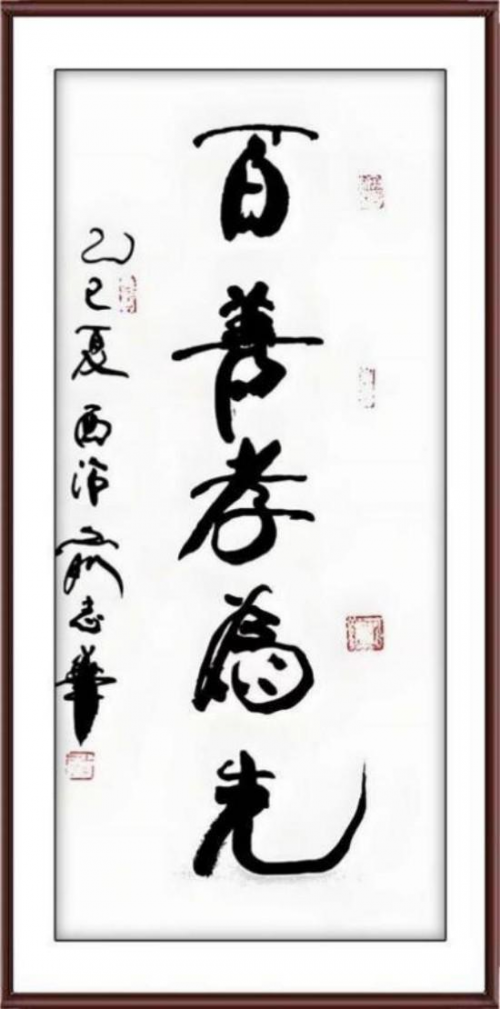 百善孝為先
乙巳夏 西泠 志華